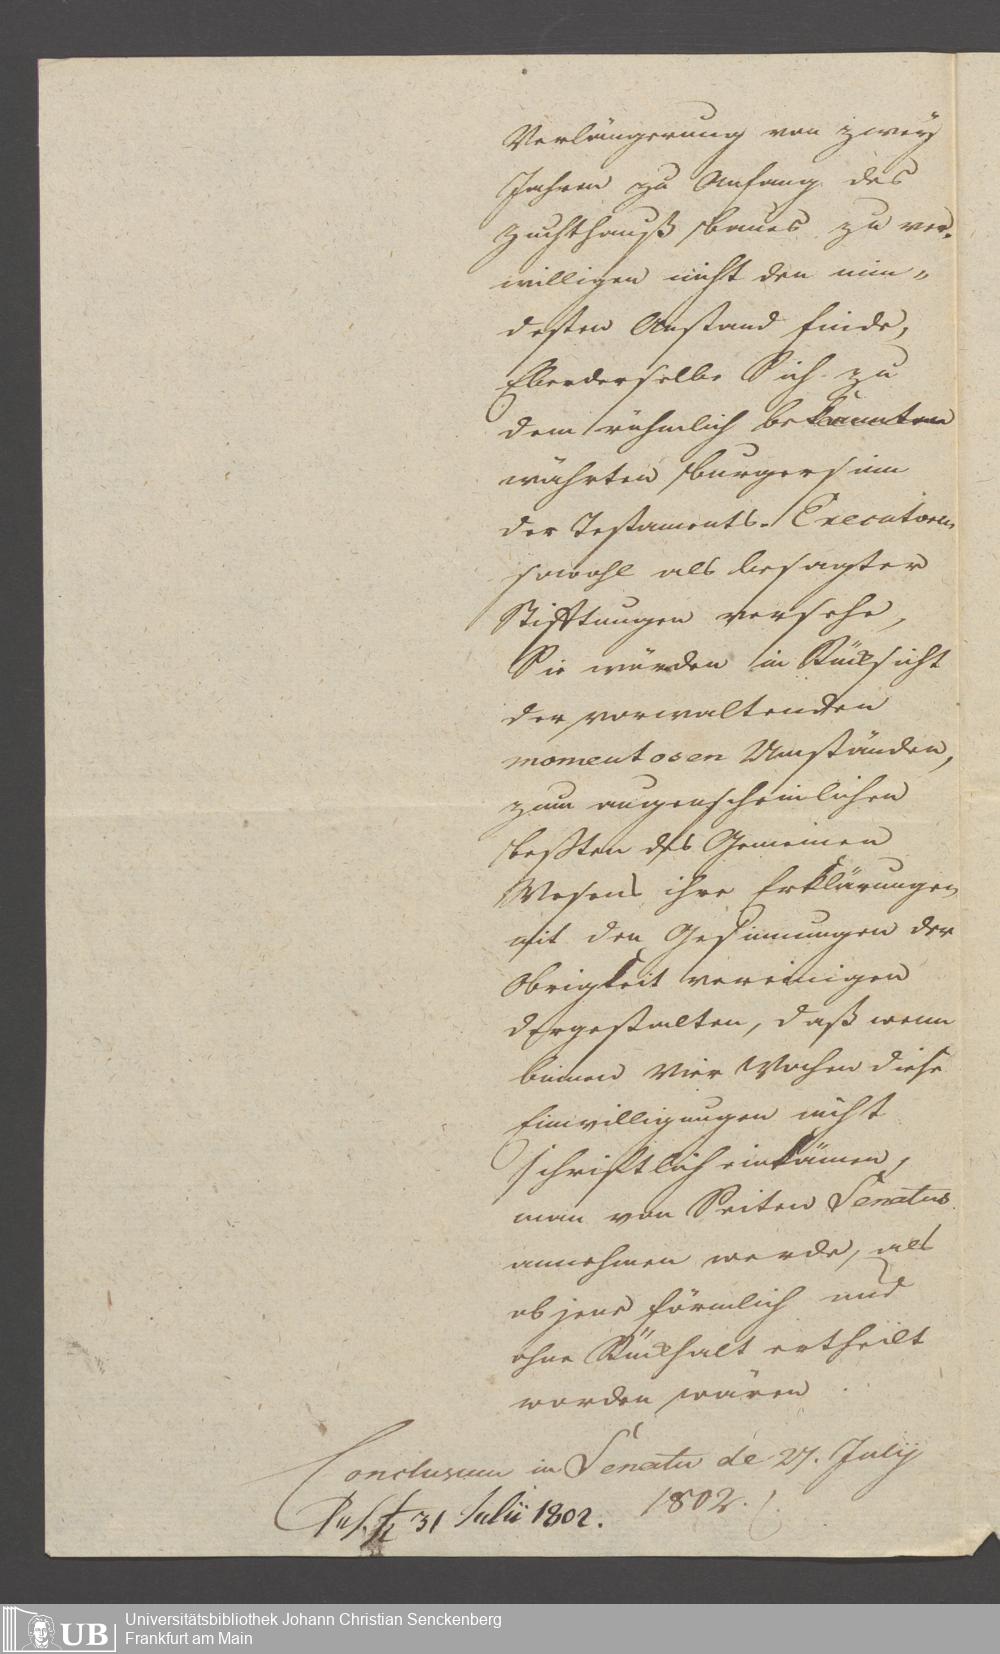 Verlängerung von zwey
Jahren zu Anfang des
Zuchthauß baues zu ver„
willigen nicht den min„
desten Anstand finde,
Ebenderselbe Sich zu
dem rühmlich bekannten
währten burgersinn
der Testaments-Executoren
sowohl als besagter
Stifftungen versehe,
Sie würden in Rücksicht
der vorwaltenden
momentosen Umständen,
zum augenscheinlichen
besten des Gemeinen
Wesens ihre Erklärungen
mit den Gesinnungen der
Obrigkeit vereinigen
dergestalten, daß wenn
binnen Vier Wochen diese
Einwilligungen nicht
schriftlich einkämen,
man von Seiten Senatus
annehmen werde, als
ob jene förmlich und
ohne Rückhalt ertheilt
worden wären.
Conclusum in Senatu de 27. Julij
1802.
31 Julii 1802.
UB Universitätsbibliothek Johann Christian Senckenberg
Frankfurt am Main